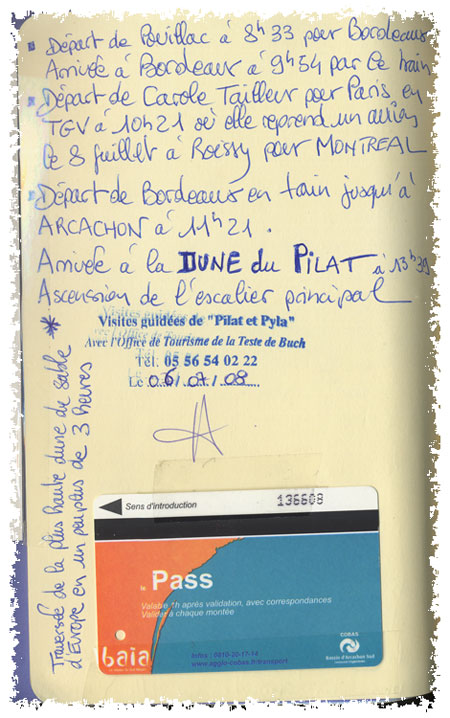 Départ de Pouillac à 8h33 pour Bordeaux
Arrivée à Bordeaux à 9h54 par le train
Départ de Carole Tailleur pour Paris en
TGV à 10h21 où elle reprend un avion
le 8 juillet à Roissy pour MONTREAL
Départ de Bordeaux en train jusqu'à
ARCACHON à 11h21.
Arrivée à la DUNE du PILAT à 13h39
Ascension de l'escalier principal
Visites guidées de "Pilat et Pyla"
Avec l'Office de Tourisme de la Teste de Buch
Tél. 05 56 54 02 22
Le 06/07/08
* Traversée de la plus haute dune de sable
d'Europe en un peu plus de 3 heures
Sens d'introduction
136608
le Pass
Valable 1h après validation, avec correspondances
Valider à chaque montée
baïa
COBAS
Bassin d'Arcachon Sud
Infos : 0810-20-17-14
www.agglo-cobas.fr/transport